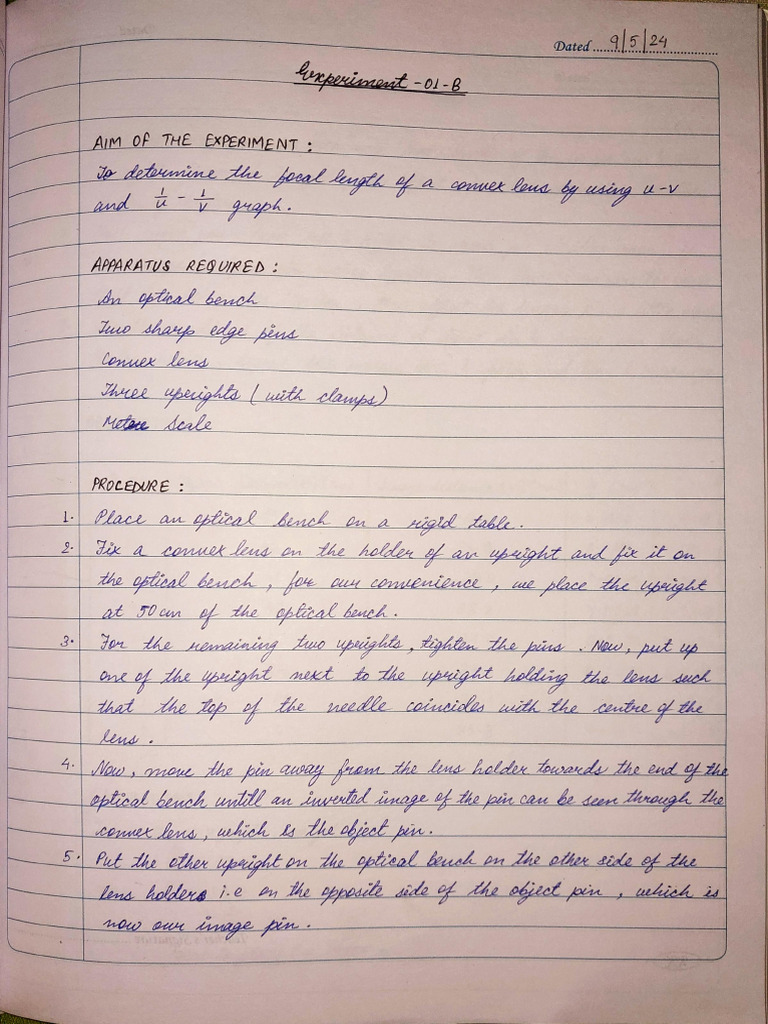 Dated 9/5/24
Experiment-01-B
AIM OF THE EXPERIMENT :
To determine the focal length of a convex lens by using u-v
and 1/u - 1/v graph.
APPARATUS REQUIRED :
An optical bench
Two sharp edge pins
Convex lens
Three uprights (with clamps)
Metre Scale
PROCEDURE :
1. Place an optical bench on a rigid table.
2. Fix a convex lens on the holder of an upright and fix it on
the optical bench, for our convenience, we place the upright
at 50cm of the optical bench.
3. For the remaining two uprights, tighten the pins. Now, put up
one of the upright next to the upright holding the lens such
that the top of the needle coincides with the centre of the
lens.
4. Now, move the pin away from the lens holder towards the end of the
optical bench untill an inverted image of the pin can be seen through the
convex lens, which is the object pin.
5. Put the other upright on the optical bench on the other side of the
lens holders i.e on the opposite side of the object pin, which is
now our image pin.